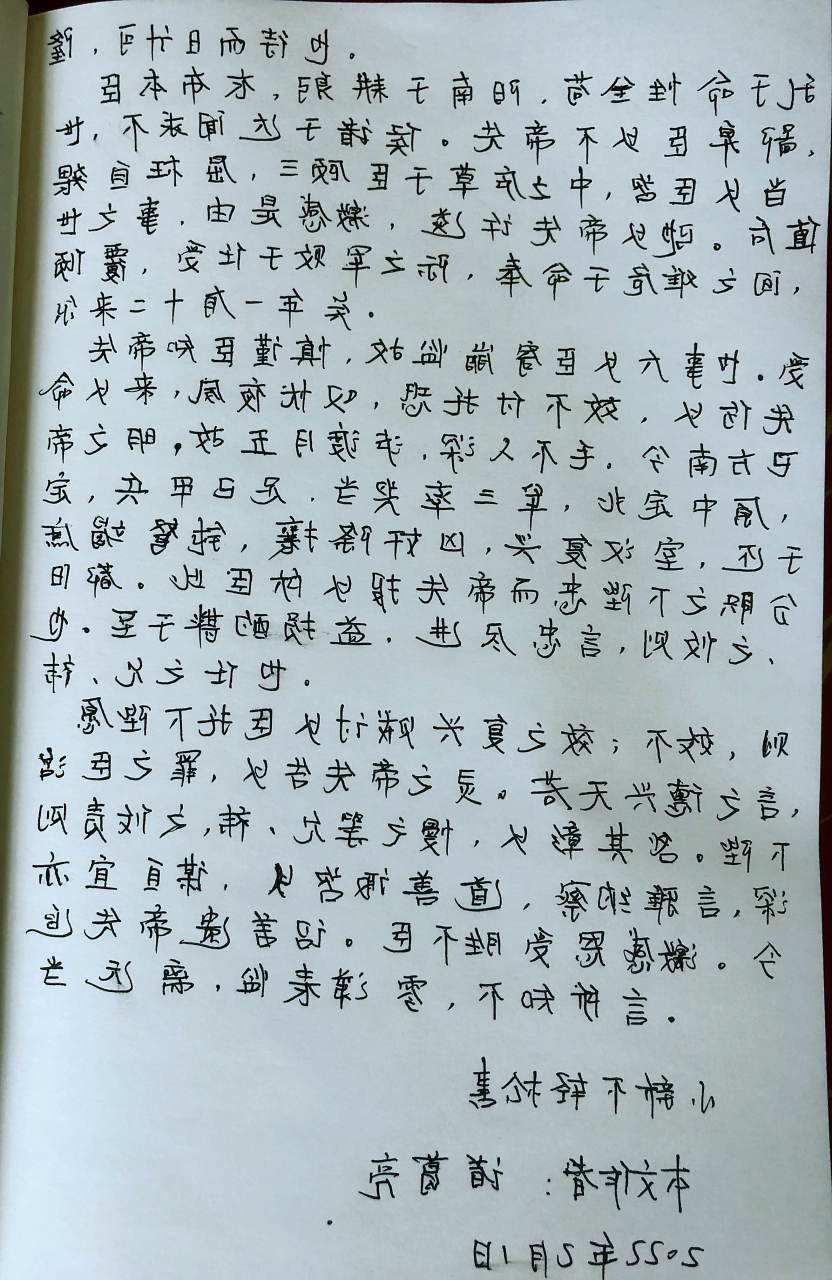 隆，可计日而待也。
臣本布衣，躬耕于南阳，苟全性命于乱
世，不求闻达于诸侯。先帝不以臣卑鄙，
猥自枉屈，三顾臣于草庐之中，咨臣以当
世之事，由是感激，遂许先帝以驰。后值
倾覆，受任于败军之际，奉命于危难之间，
尔来二十有一年矣。
先帝知臣谨慎，故临崩寄臣以大事也。受
命以来，夙夜忧叹，恐托付不效，以伤先
帝之明。故五月渡泸，深入不毛。今南方已
定，兵甲已足，当奖率三军，北定中原，
庶竭驽钝，攘除奸凶，兴复汉室，还于
旧都。此臣所以报先帝而忠陛下之职分
也。至于斟酌损益，进尽忠言，则攸之、
祎、允之任也。
愿陛下托臣以讨贼兴复之效；不效，则
治臣之罪，以告先帝之灵。若无兴德之言，
则责攸之、祎、允等之慢，以彰其咎。陛下
亦宜自谋，以咨诹善道，察纳雅言，深
追先帝遗诏。臣不胜受恩感激。今
当远离，临表涕零，不知所言。
小新不轻松書
本文作者：诸葛亮
2022年2月1日